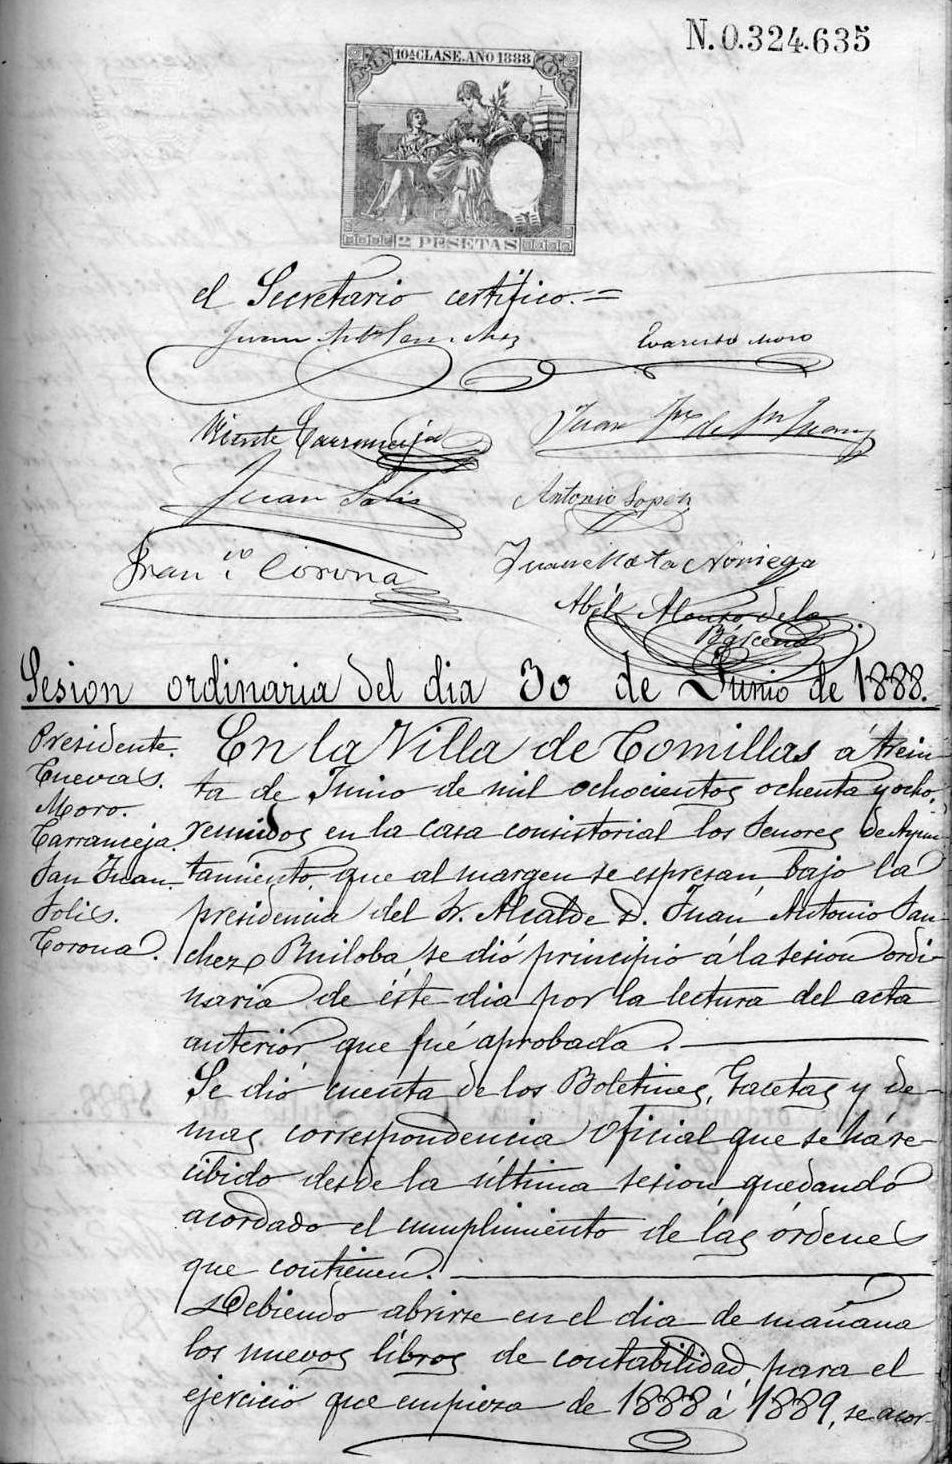 N. 0.324.635
10ª CLASE. AÑO 1888
2 PESETAS
el Secretario certifico.=
Juan Anto San. chez
Evaristo Moro
Vicente Carranceja
Juan de San Juan
Juan Solis
Antonio Lopez
Juan Mata Noriega
Corona
Abel Alonso de la
Bárcena
Sesion ordinaria del dia 30 de Junio de 1888.
Presidente.
Cuevas.
Moro.
Carranceja.
San Juan.
Solis.
Corona.
En la Villa de Comillas á trein-
ta de Junio de mil ochocientos ochenta y ocho,
reunidos en la casa consistorial los Señores de Ayun-
tamiento, que al margen se espresan, bajo la
presidencia del Sr. Alcalde D. Juan Antonio San-
chez Builoba, se dió principio á la sesion ordi-
naria de éste dia por la lectura del acta
anterior que fué aprobada.
Se dió cuenta de los Boletines, Gacetas y de-
mas correspondencia oficial que se há re-
cibido desde la última sesion, quedando
acordado el cumplimiento de las órdenes
que contienen.
Debiendo abrirse en el dia de mañana
los nuevos libros de contabilidad, para el
ejercicio que empieza de 1888 á 1889, se acor-